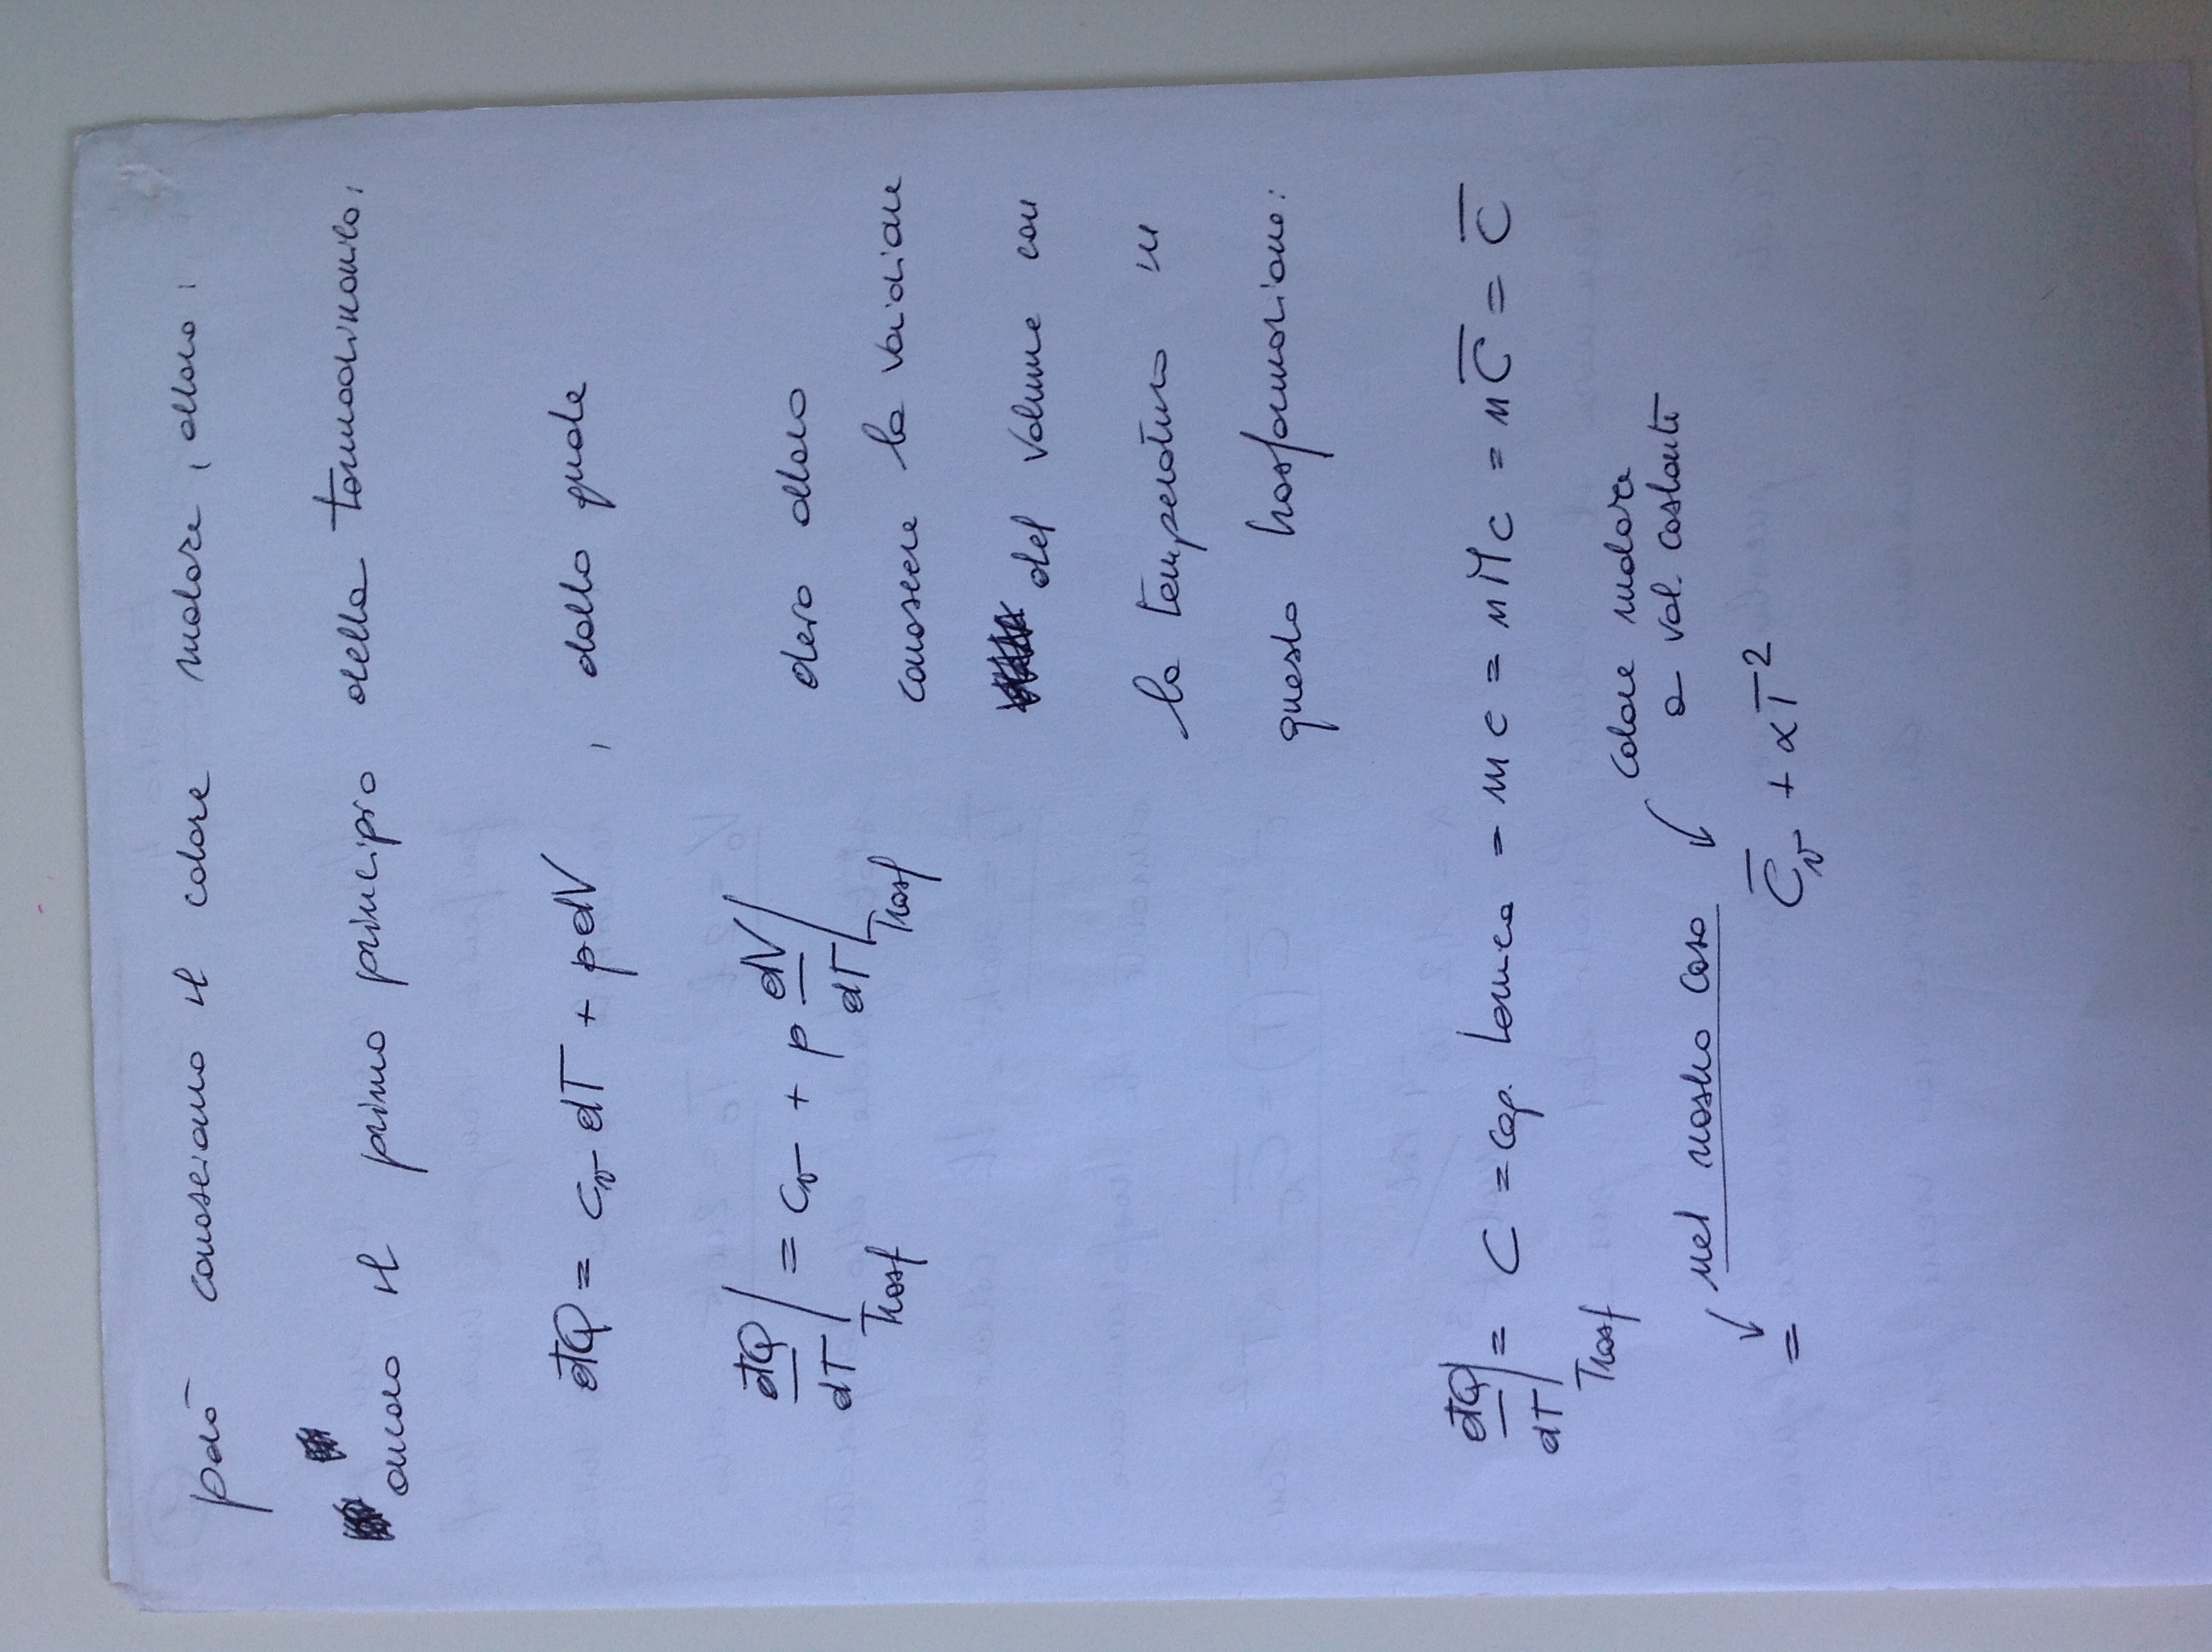 però conosciamo il calore molare, allora:
ancora il primo principio della termodinamica:
đQ = c_v dT + p dV , dalla quale
đQ/dT |Trasf = c_v + p dV/dT |Trasf devo allora
conoscere la variazione
del volume con
la temperatura in
questa trasformazione:
đQ/dT |Trasf = C = cap. termica = mc = nMc = nC̅ = C̅
calore molare
a vol. costante
nel nostro caso
= C̅_v + αT²